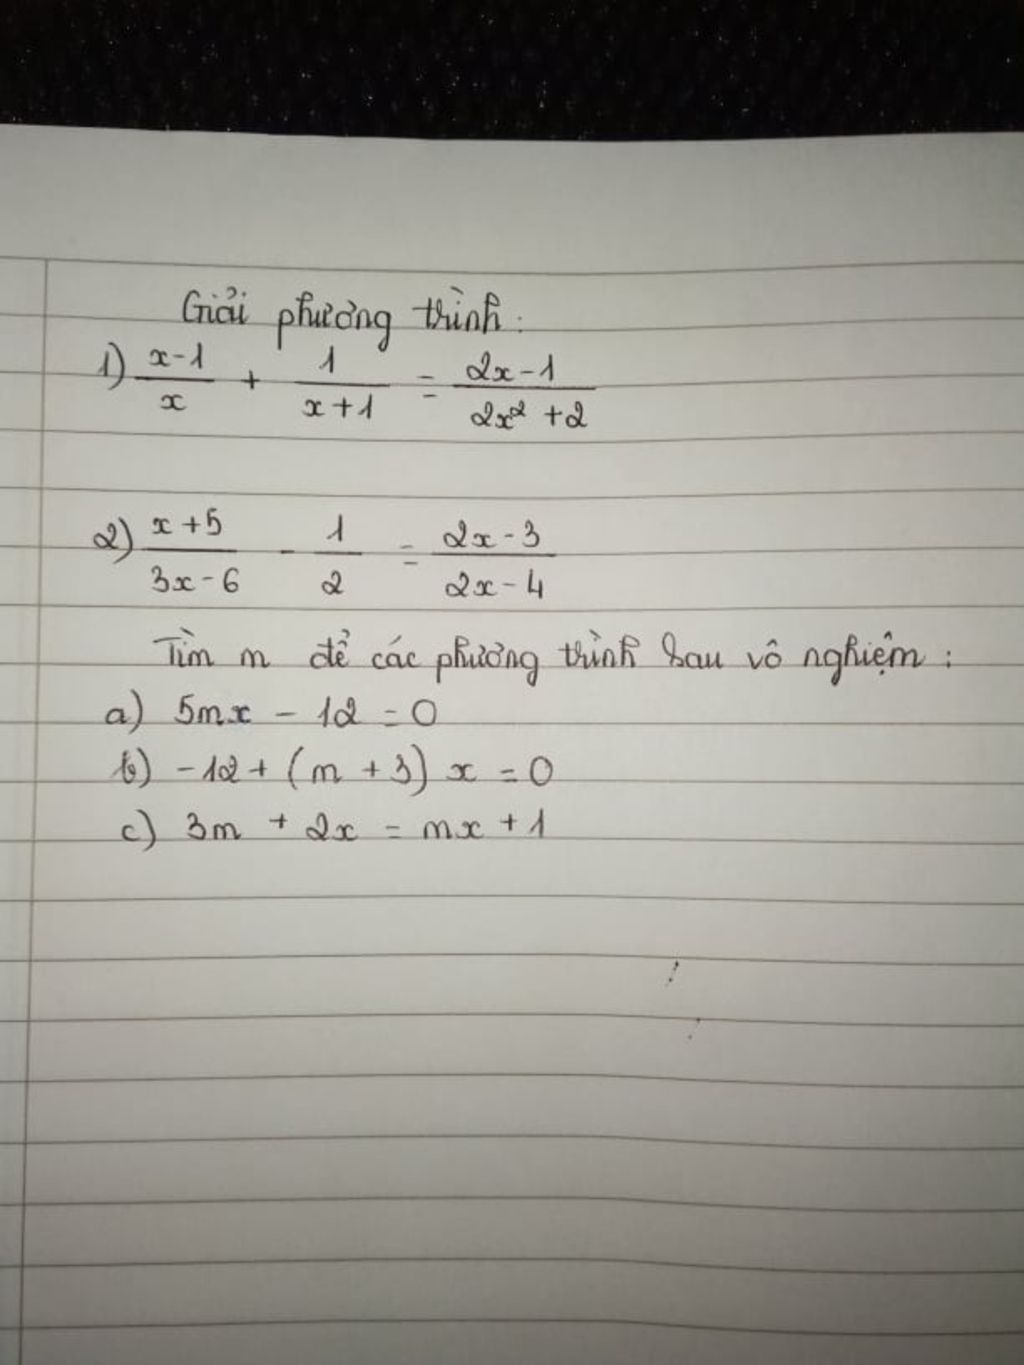 Giải phương trình:
1) \frac{x-1}{x} + \frac{1}{x+1} = \frac{2x-1}{2x²+2}
2) \frac{x+5}{3x-6} - \frac{1}{2} = \frac{2x-3}{2x-4}
Tìm m để các phương trình sau vô nghiệm:
a) 5mx - 12 = 0
b) -12 + (m + 3) x = 0
c) 3m + 2x = mx + 1